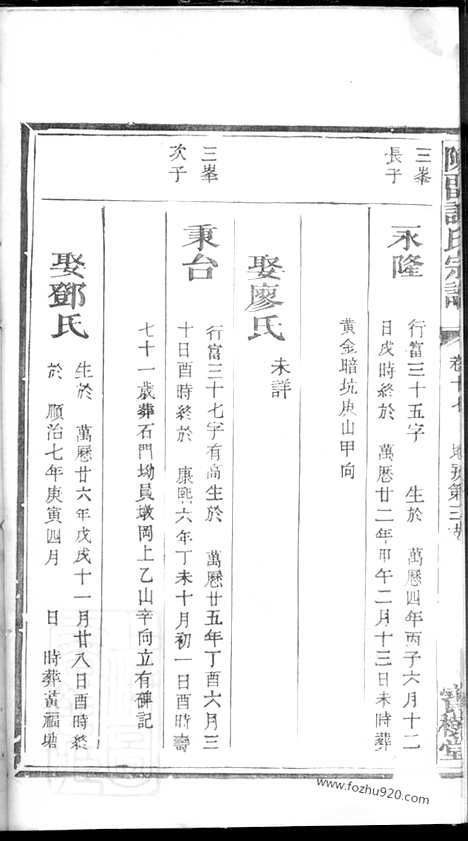 三峯
長子
永隆
行富三十五字 生於 萬曆四年丙子六月十二
日戌時終於 萬曆廿二年甲午二月十三日未時葬
黃金暗坑庚山甲向
娶廖氏
未詳
三峯
次子
秉台
行富三十七字有高生於 萬曆廿五年丁酉六月三
十日酉時終於 康熙六年丁未十月初一日酉時壽
七十一歲葬石門坳員墩岡上乙山辛向立有碑記
娶鄧氏
生於 萬曆廿六年戊戌十一月廿八日酉時終
於 順治七年庚寅四月 日 時葬黃福塘
www.fozhu920.com